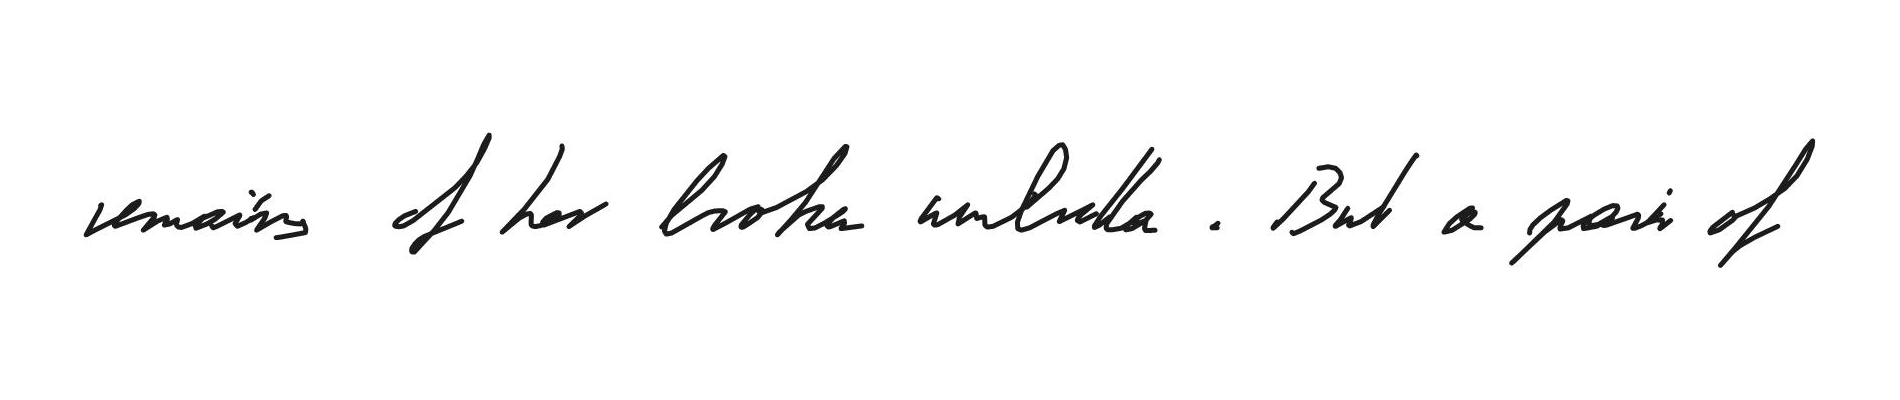 remains of her broken umbrella. But a pair of